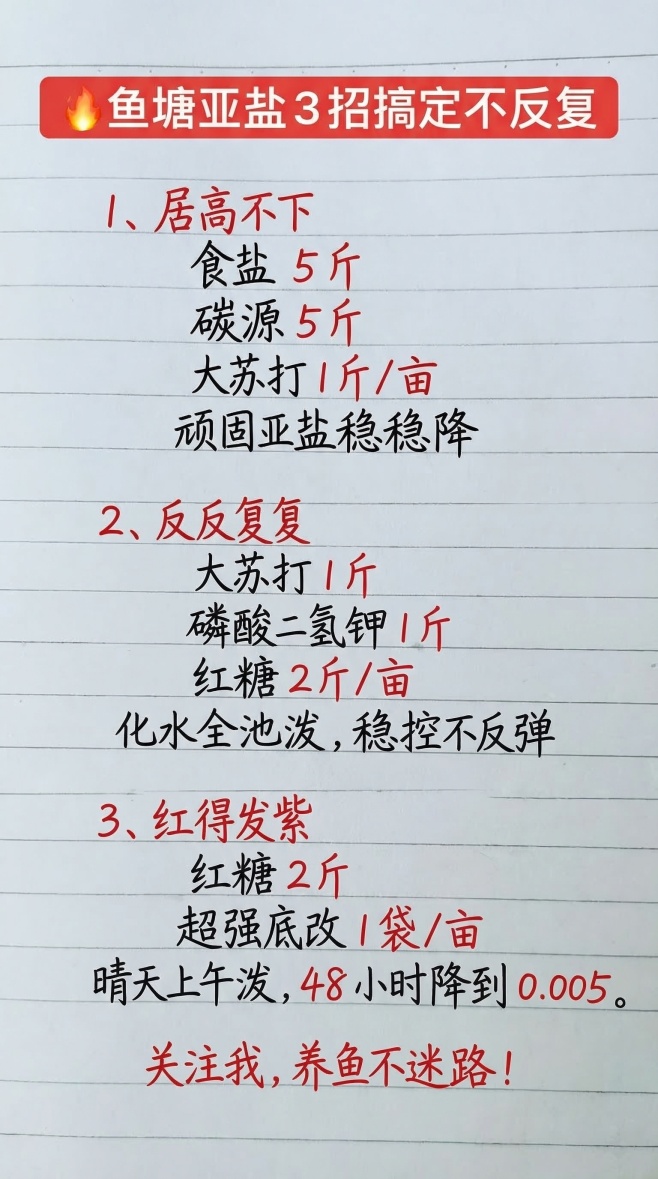 🔥鱼塘亚盐3招搞定不反复
1、居高不下
食盐 5斤
碳源 5斤
大苏打 1斤/亩
顽固亚盐稳稳降
2、反反复复
大苏打 1斤
磷酸二氢钾 1斤
红糖 2斤/亩
化水全池泼,稳控不反弹
3、红得发紫
红糖 2斤
超强底改 1袋/亩
晴天上午泼,48小时降到0.005。
关注我,养鱼不迷路!